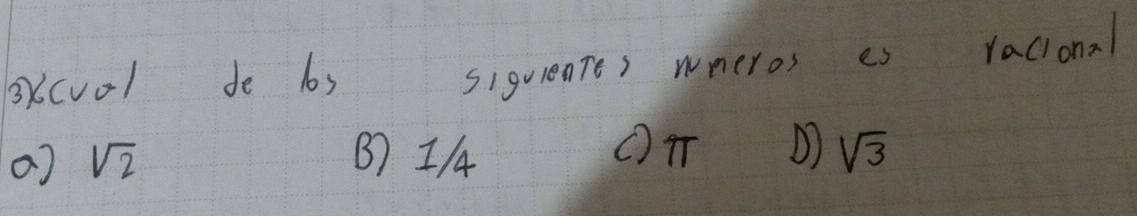 3) ¿cual de los siguientes numeros es racional
a) √2 B) 1/4 C) π D) √3